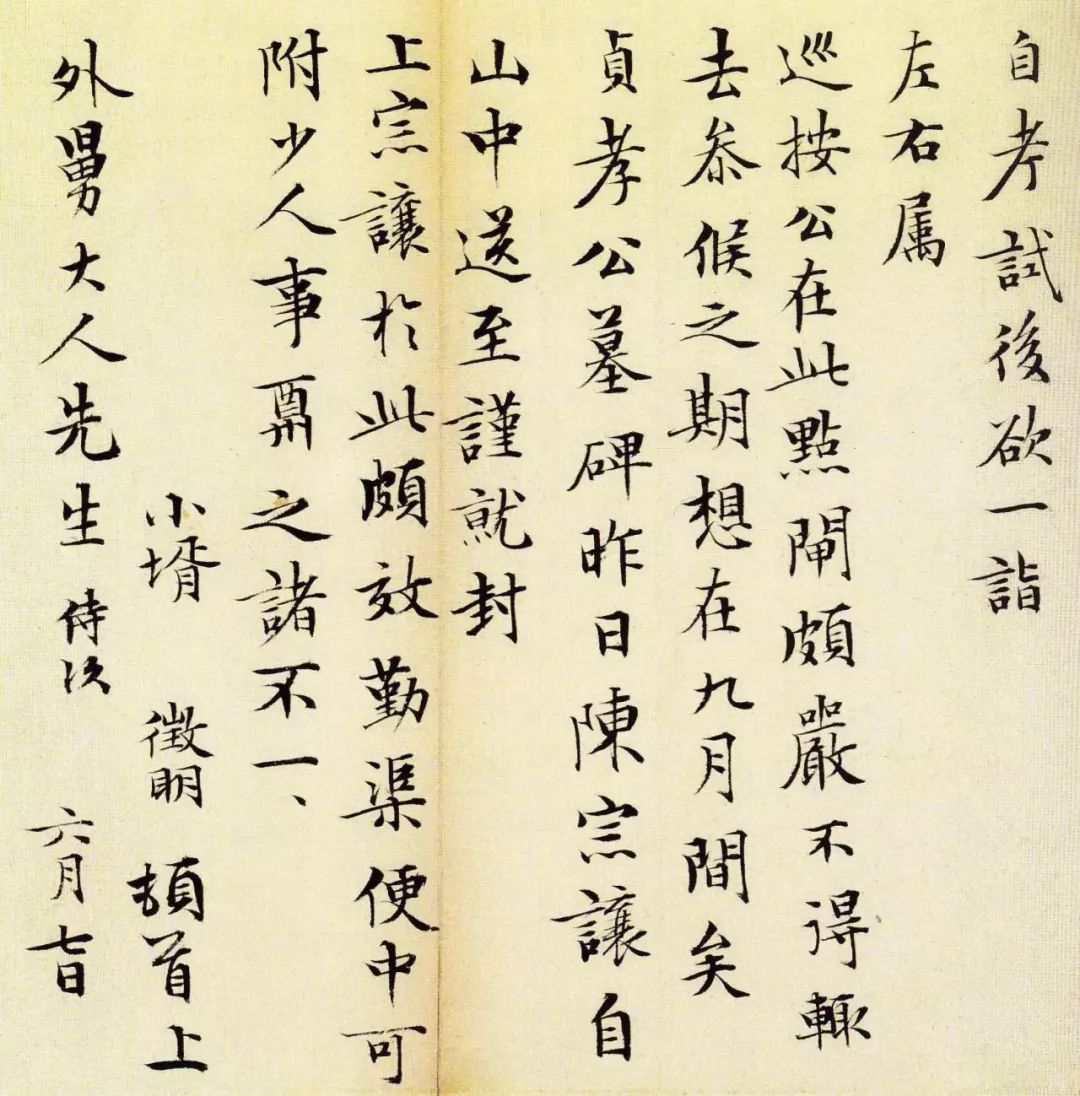 自考試後欲一詣
左右属
巡按公在此點閘頗嚴不得輙
去叅候之期想在九月間矣
貞孝公墓碑昨日陳宗讓自
山中送至謹就封
上宗讓於此頗效勤渠便中可
附少人事鬲之諸不一、
小壻 徵明 頓首上
外舅大人先生 侍次 六月七日